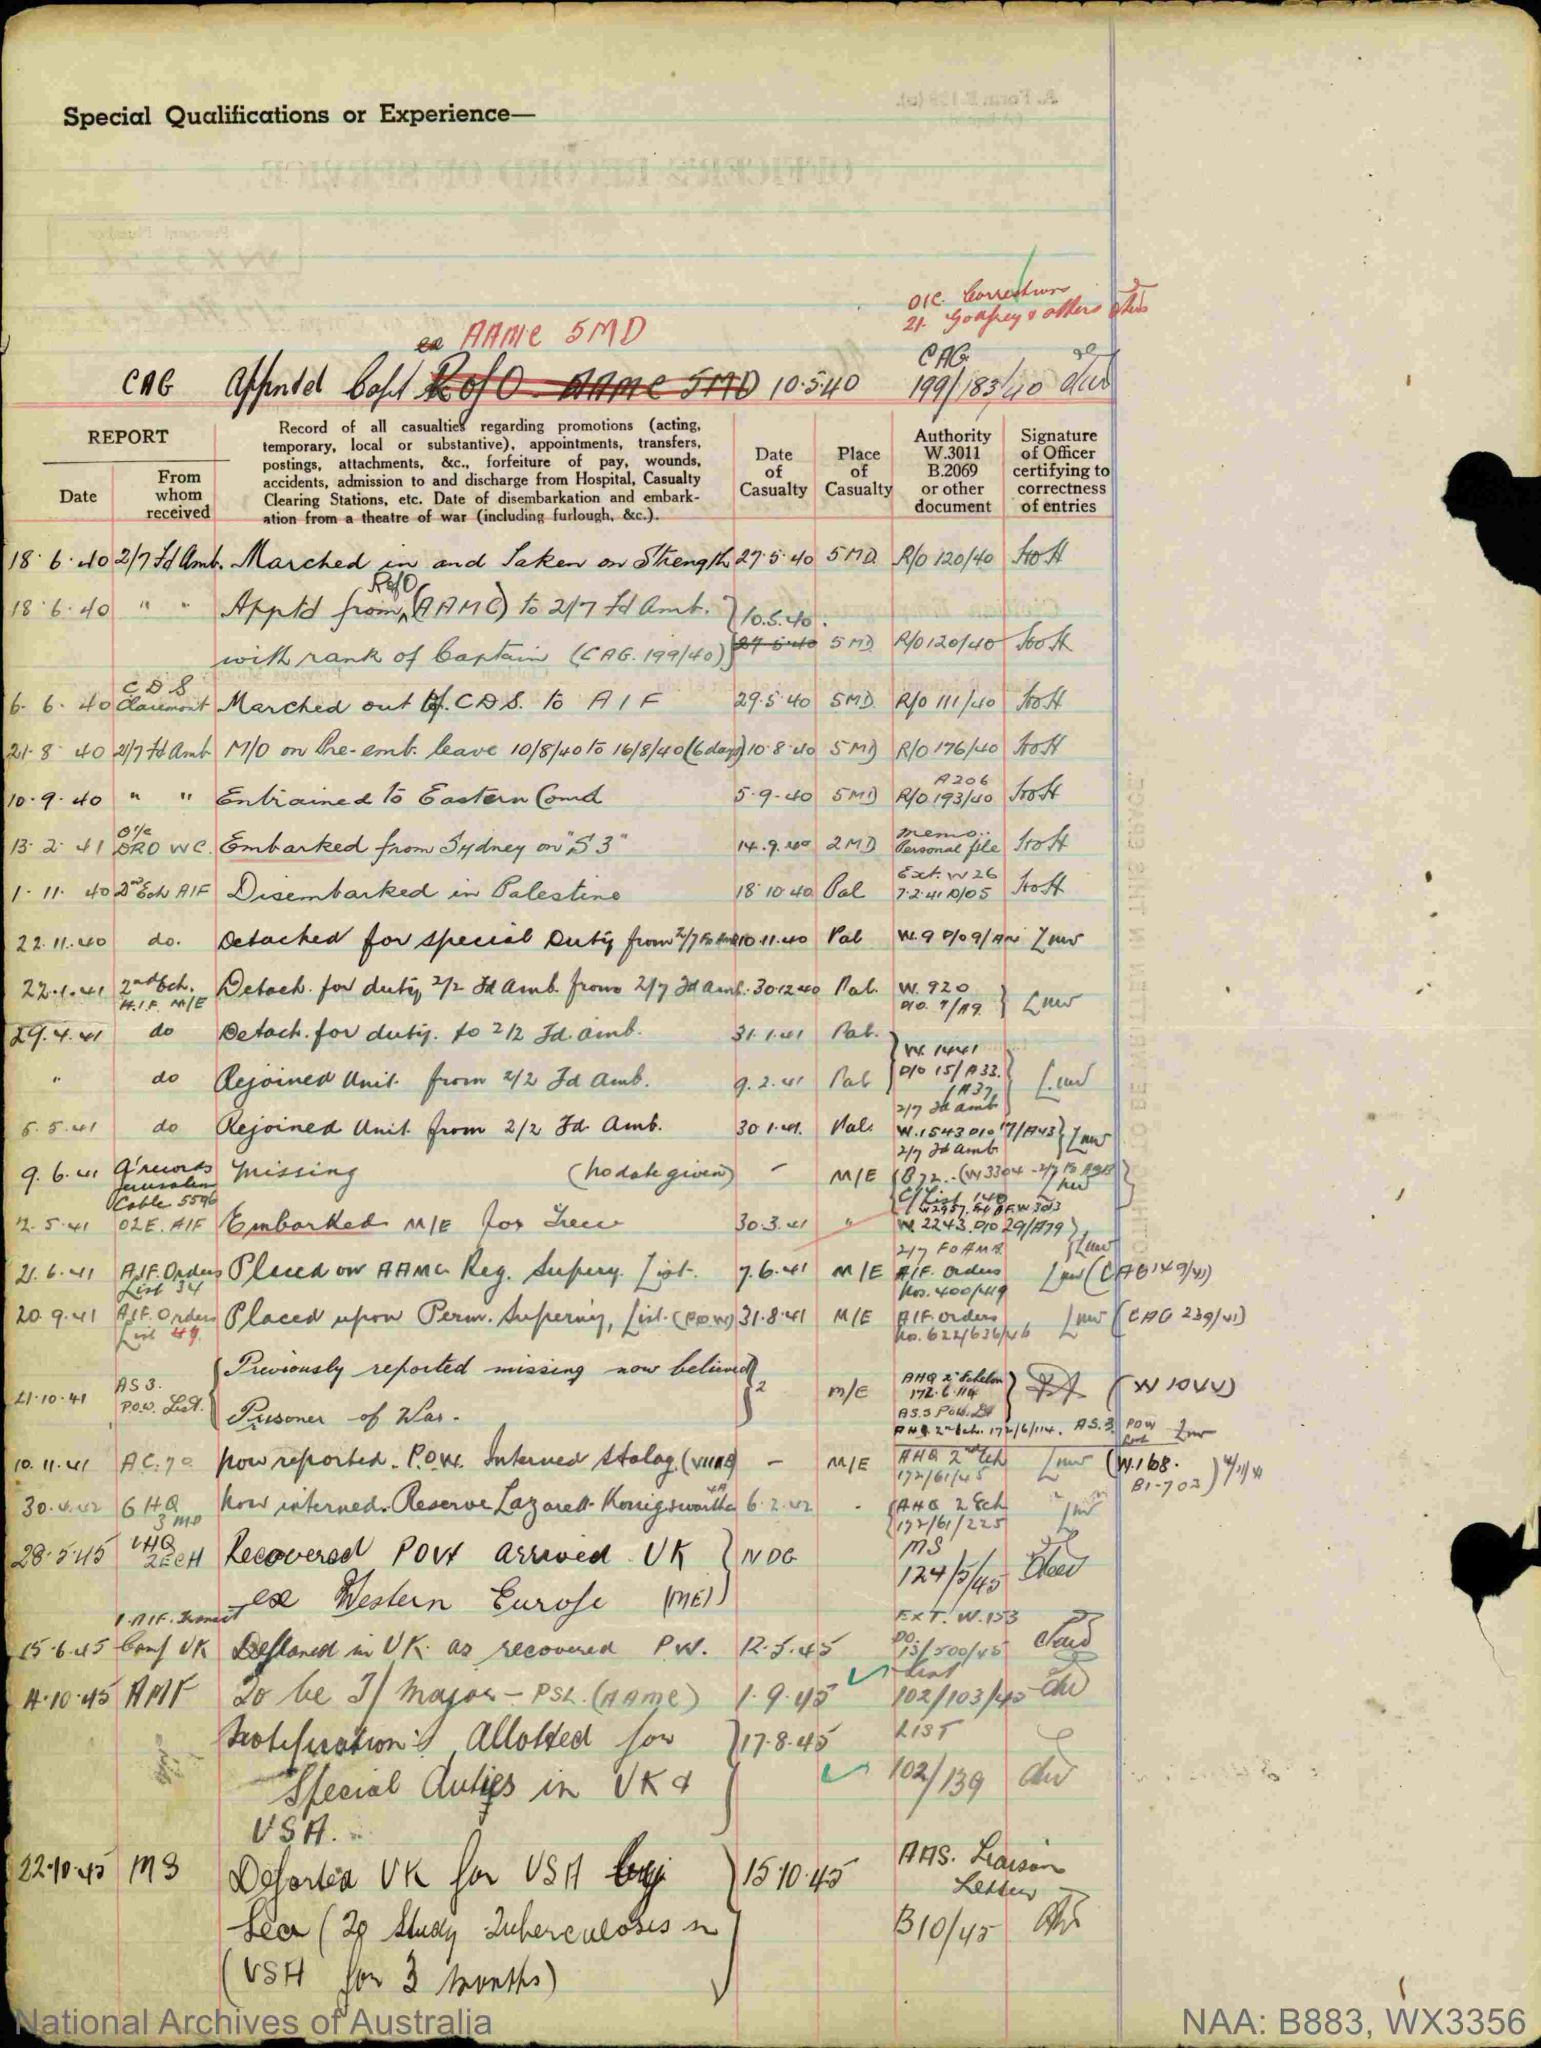 Special Qualifications or Experience—
OIC. Corrections
21. Godfrey & others
ex AAMC 5MD
CAG Appntd Capt R of O AAMC 5MD 10.5.40 CAG 199/183/40
REPORT
Date
From whom received
Record of all casualties regarding promotions (acting,
temporary, local or substantive), appointments, transfers,
postings, attachments, &c., forfeiture of pay, wounds,
accidents, admission to and discharge from Hospital, Casualty
Clearing Stations, etc. Date of disembarkation and embark-
ation from a theatre of war (including furlough, &c.).
Date of Casualty
Place of Casualty
Authority W.3011 B.2069 or other document
Signature of Officer certifying to correctness of entries
18.6.40 2/7 Fd Amb. Marched in and Taken on Strength 27.5.40 5MD R/O 120/40
18.6.40 " " Apptd from R of O (AAMC) to 2/7 Fd Amb. 10.5.40.
with rank of Captain (CAG. 199/40) 27.5.40 5MD R/O 120/40
6.6.40 CDS Claremont Marched out of C.D.S. to AIF 29.5.40 5MD R/O 111/40
21.8.40 2/7 Fd Amb M/O on Pre-emb. leave 10/8/40 to 16/8/40 (6 days) 10.8.40 5MD R/O 176/40
10.9.40 " " Entrained to Eastern Comd 5.9.40 5MD A206 R/O 193/40
13.2.41 O i/c DRO WC. Embarked from Sydney on "S3" 14.9.40 2MD Memo. Personal file
1.11.40 2nd Ech AIF Disembarked in Palestine 18.10.40 Pal Ext. W26 7.2.41 D/O 5
22.11.40 do. Detached for special Duty from 2/7 Fd Amb 10.11.40 Pal W.9 D/O 9/
22.1.41 2nd Ech. A.I.F. M/E Detach. for duty 2/2 Fd Amb. from 2/7 Fd Amb. 30.12.40 Pal. W.920 D/O. 7/A9.
29.4.41 do Detach. for duty. to 2/2 Fd. Amb. 31.1.41 Pal.
" do Rejoined Unit from 2/2 Fd Amb. 9.2.41 Pal W.1441 D/O 15/A33. /A37 2/7 Fd Amb
5.5.41 do Rejoined Unit from 2/2 Fd Amb. 30.1.41. Pal. W.1543 D/O 17/A43 2/7 Fd Amb
9.6.41 A'records Jerusalem Cable 5596 Missing (no date given) – M/E B72. (W3304 C/List 140
12.5.41 02E. AIF Embarked M/E for 30.3.41 " W.2243. D/O 29/A79 2/7 FD AMB.
21.6.41 A.I.F. Orders List 34 Placed on AAMC Reg. Supery. List. 7.6.41 M/E A.I.F. Orders Nos. 400/419 (CAG 149/41)
20.9.41 A.I.F. Orders List 49. Placed upon Perm. Supernry. List. (POW) 31.8.41 M/E A.I.F. Orders No. 622/636/46 (CAG 239/41)
21.10.41 AS3. P.O.W. List. Previously reported missing now believed
Prisoner of War. M/E AHQ 2nd Echelon 172.6.114 AS.3 POW. List (W 1044)
AHQ 2nd Ech. 172/6/114. AS.3. POW
10.11.41 AC.70 Now reported. P.O.W. Interned Stalag. (VIIIB) – M/E AHQ 2nd Ech 172/61/45 (W.168. B1-702)
30.4.42 GHQ 3 MD Now interned. Reserve Lazarett Konigswartha 4A 6.2.42 AHQ 2 Ech 172/61/225
28.5.45 LHQ 2ECH Recovered POW arrived UK NDG MS 124/5/45
ex Western Europe (ME)
15.6.45 1. AIF. Transit Camp UK Deplaned in UK as recovered P.W. 12.5.45 EXT. W.153 DO. 13/500/45
4.10.45 AMF To be T/Major – PSL. (AAMC) 1.9.45 List 102/103/45
Notification: Allotted for 17.8.45 LIST
Special duties in UK & 102/139
USA.
22.10.45 MS Departed UK for USA by 15.10.45 AAS. Liaison Letter
Sea (To Study Tuberculosis in B10/45
(USA for 3 months)
National Archives of Australia
NAA: B883, WX3356